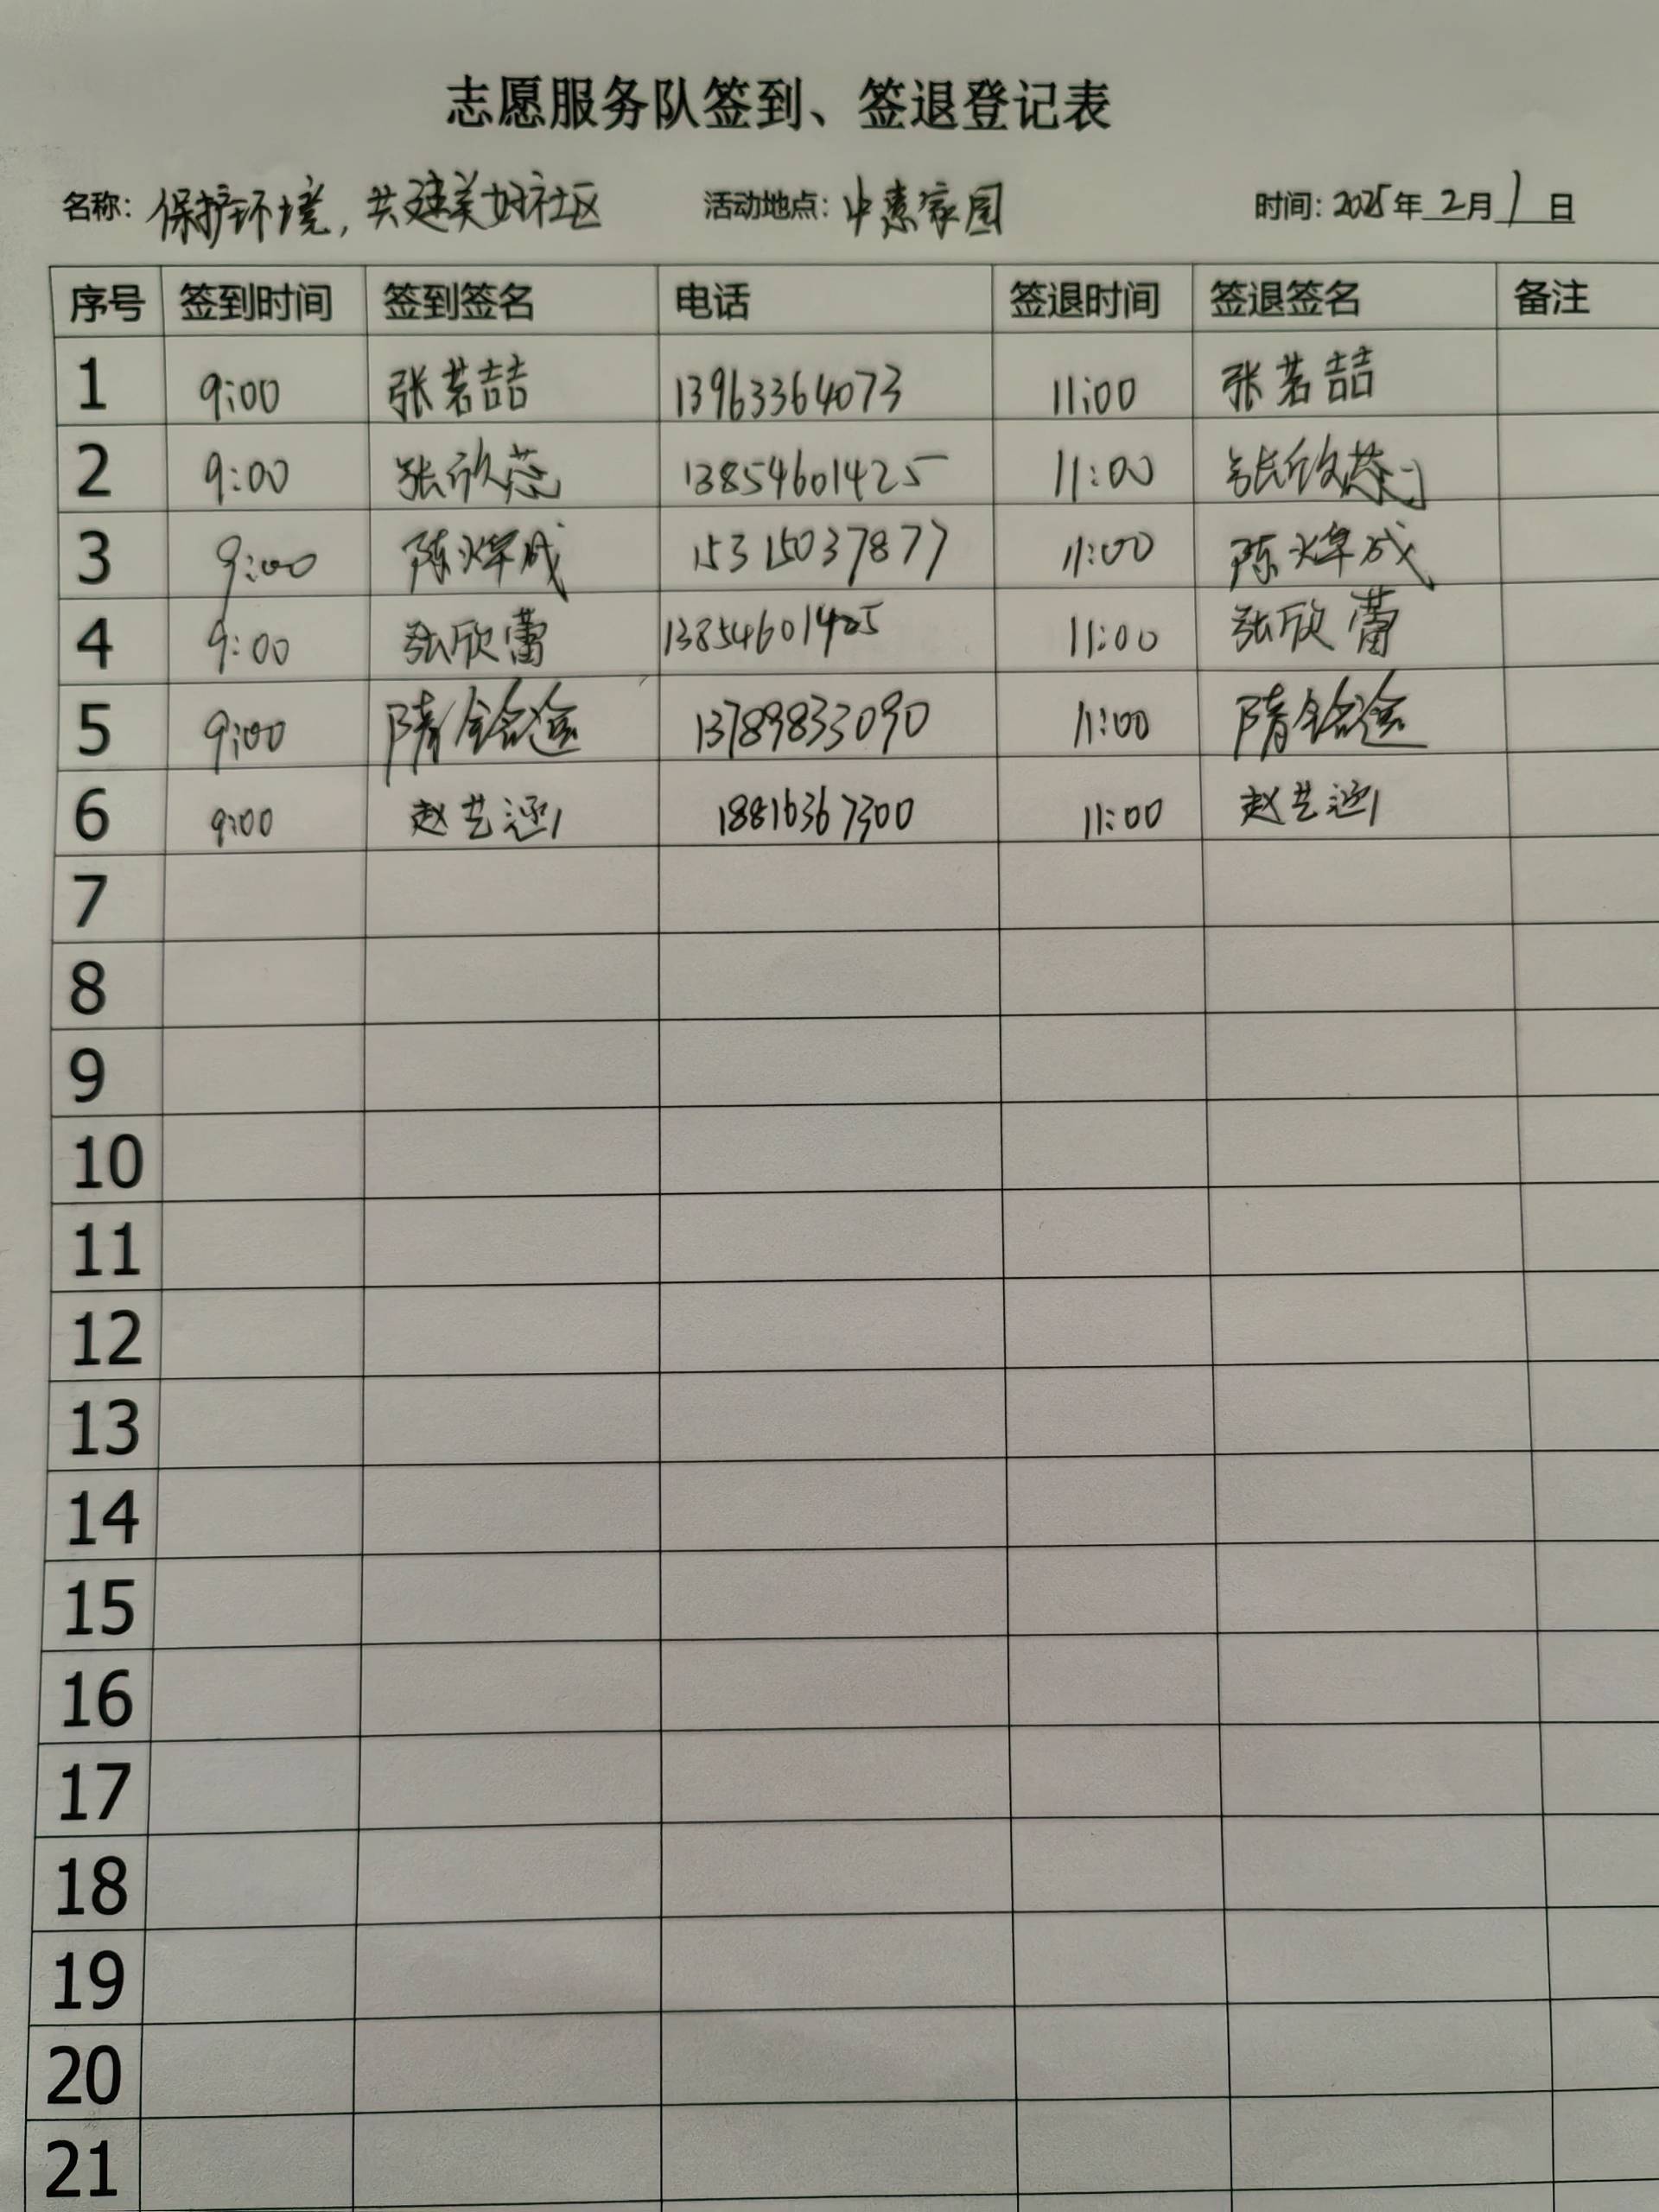 志愿服务队签到、签退登记表
名称：保护环境，共建美好社区 活动地点：中惠家园 时间：2025年2月1日
序号 签到时间 签到签名 电话 签退时间 签退签名 备注
1 9:00 张茗喆 13963364073 11:00 张茗喆
2 9:00 张欣蕊 13854601425 11:00 张欣蕊
3 9:00 陈焯成 15315037877 11:00 陈焯成
4 9:00 张欣蕾 13854601425 11:00 张欣蕾
5 9:00 隋铭 13789833090 11:00 隋铭
6 9:00 赵艺 18816367300 11:00 赵艺
7
8
9
10
11
12
13
14
15
16
17
18
19
20
21